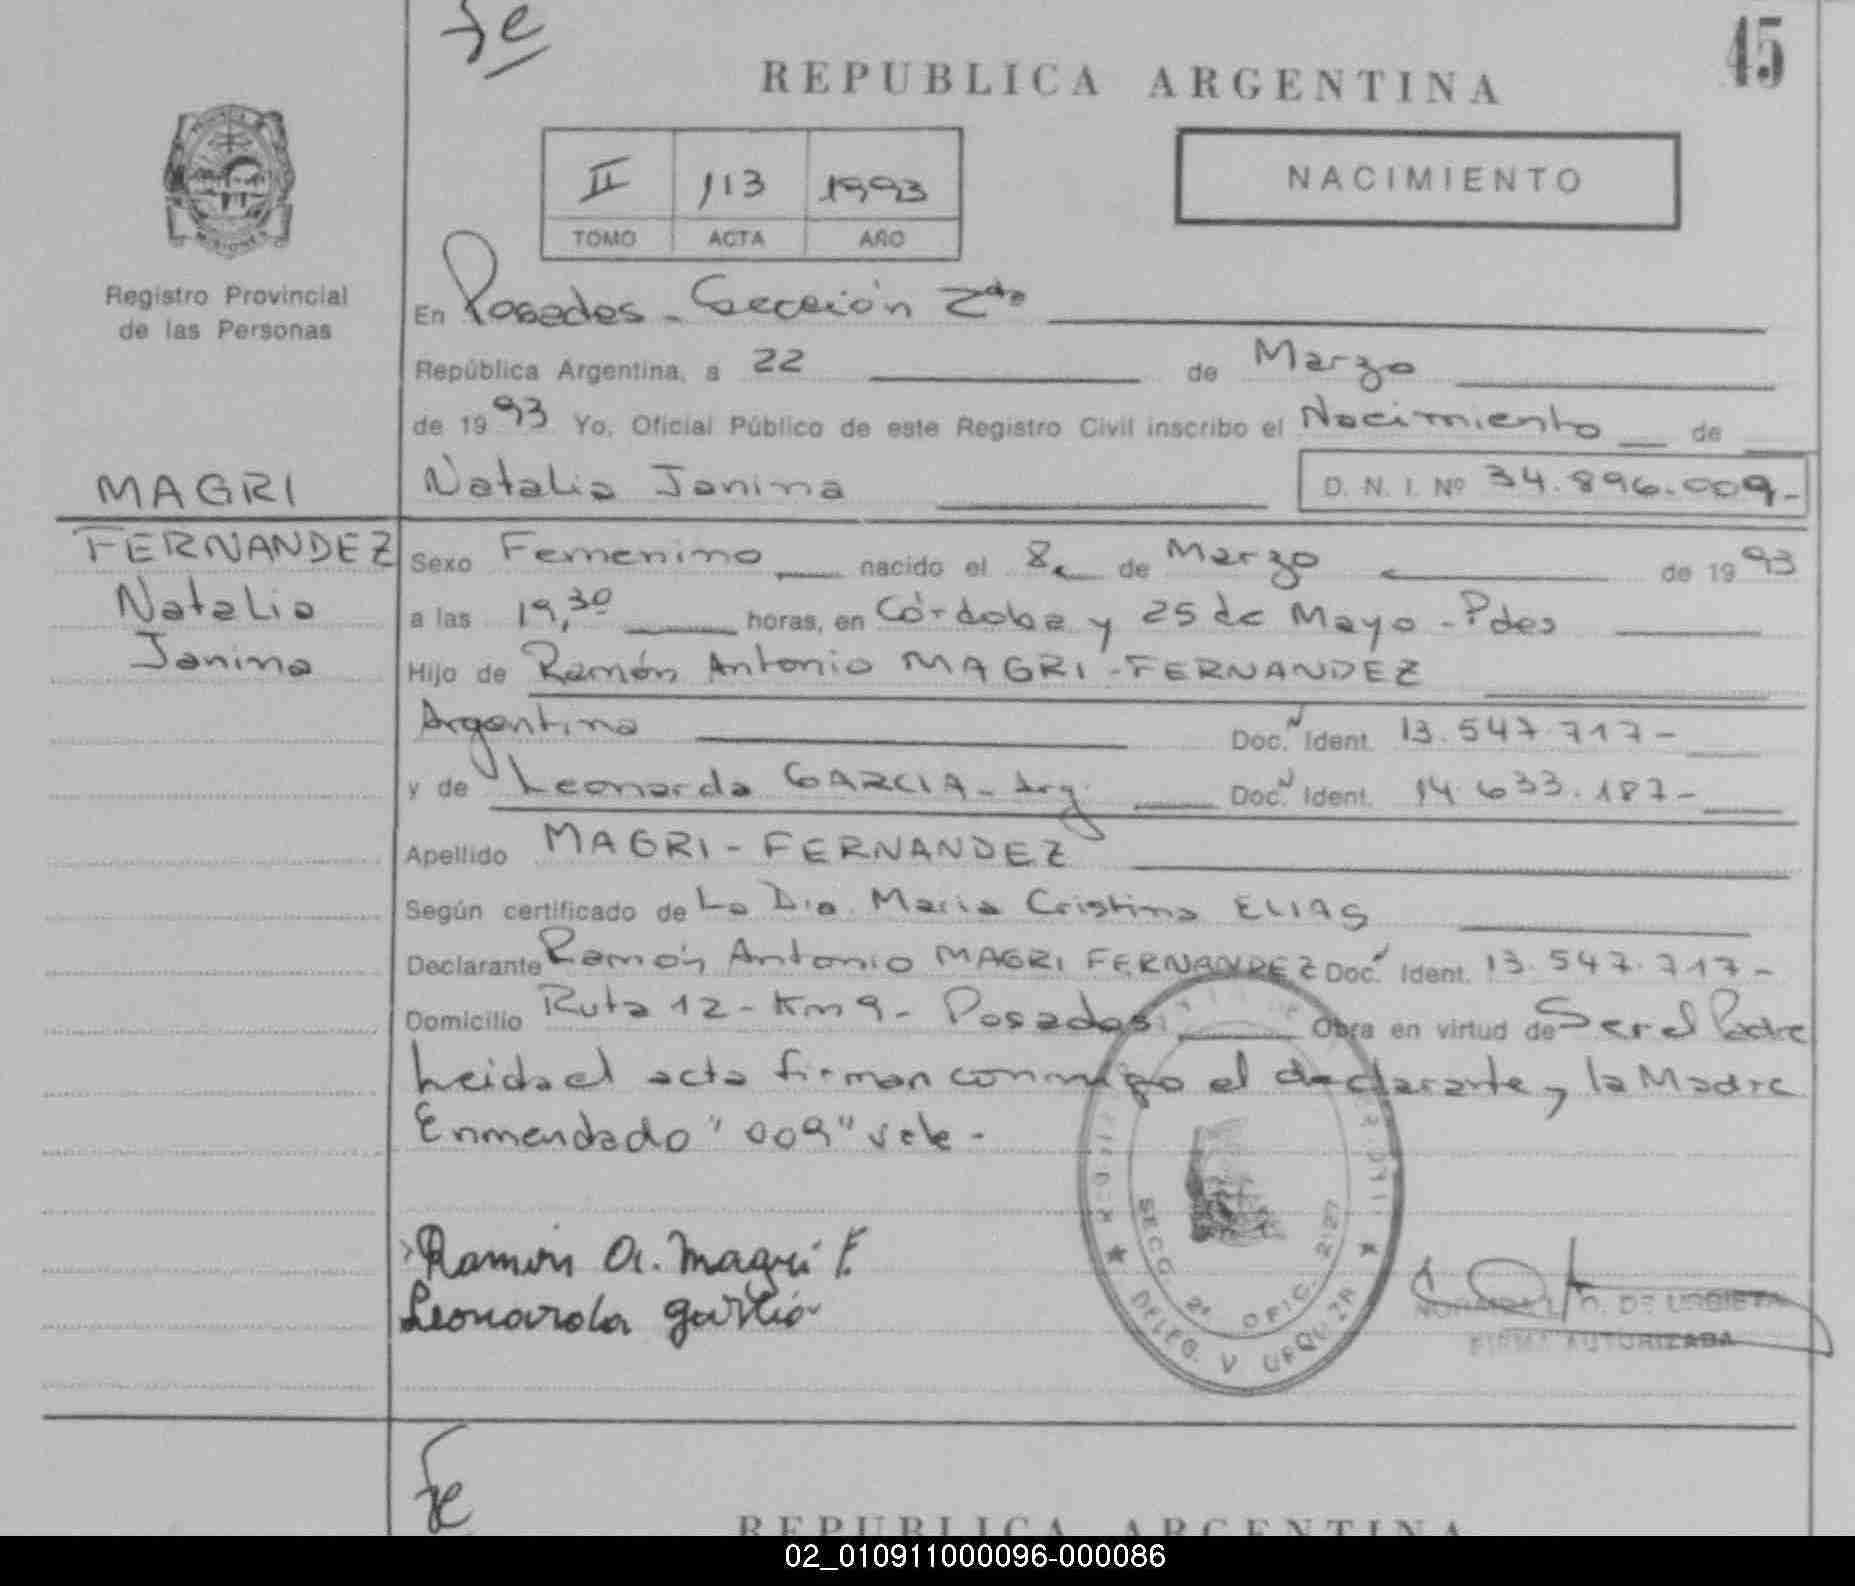 fe
45
REPUBLICA ARGENTINA
II 113 1993
TOMO ACTA AÑO
NACIMIENTO
MISIONES
Registro Provincial
de las Personas
En Posadas - Sección 2da
República Argentina, a 22 de Marzo
de 1993 Yo, Oficial Público de este Registro Civil inscribo el Nacimiento de
MAGRI
Natalia Janina D. N. I. Nº 34.896.009-
FERNANDEZ
Natalia
Janina
Sexo Femenino nacido el 8 de Marzo de 1993
a las 19,30 horas, en Córdoba y 25 de Mayo - Pdas
Hijo de Ramón Antonio MAGRI - FERNANDEZ
Argentina Doc. N Ident. 13.547.717-
y de Leonarda GARCIA - Arg. Doc. N Ident. 14.633.187-
Apellido MAGRI - FERNANDEZ
Según certificado de La Dra. Maria Cristina ELIAS
Declarante Ramón Antonio MAGRI FERNANDEZ Doc. Ident. 13.547.717-
Domicilio Ruta 12 - Km 9 - Posadas Obra en virtud de Ser el Padre
Leida el acta firman conmigo el declarante y la Madre
Enmendado "009" vale -
Ramón A. Magri F.
Leonarda García
SECC. 2ª OFIC. 2127
DELEG. V URQUIZA
DE URBIETA
FIRMA AUTORIZADA
fe
REPUBLICA ARGENTINA
02_010911000096-000086